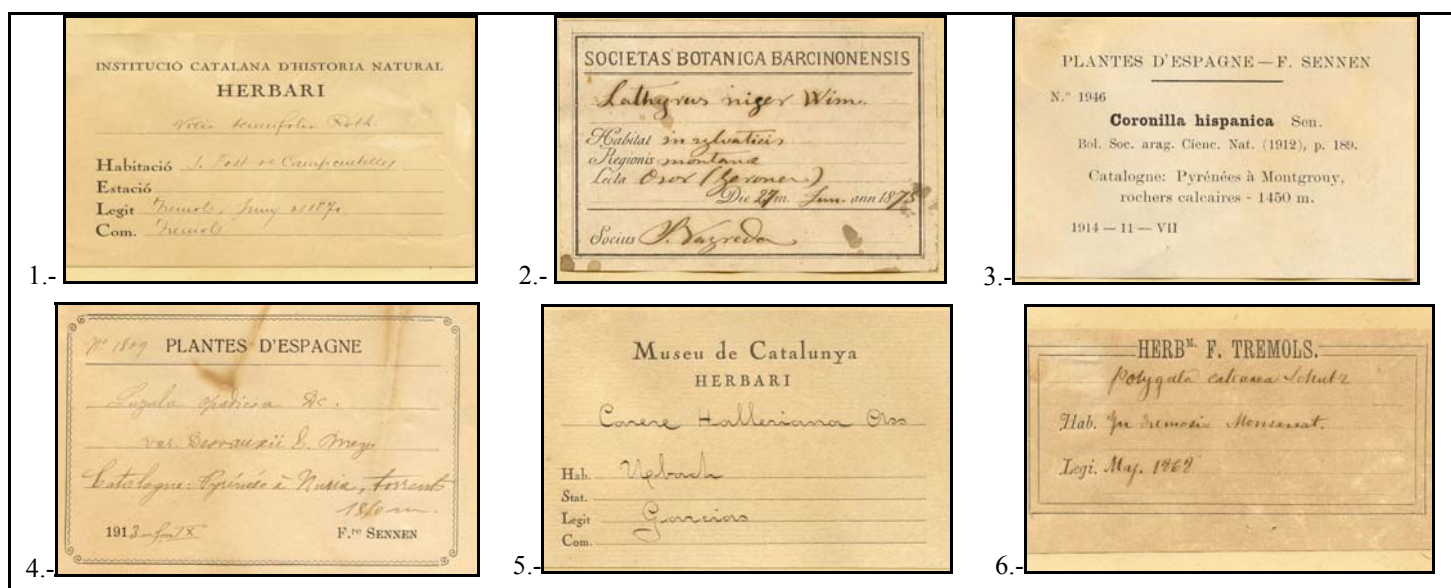 INSTITUCIÓ CATALANA D'HISTORIA NATURAL
HERBARI
tenuifolia Roth
Habitació S. Fost de Campcentelles
Estació
Legit Tremols, Juny de 1870
Com. Tremols
1.-
SOCIETAS BOTANICA BARCINONENSIS
Lathyrus niger Wim.
Habitat in sylvaticis
Regionis montanæ
Lecta Osor (Gerona)
Die 27 m. Jun. ann 1875
Socius
2.-
PLANTES D'ESPAGNE — F. SENNEN
N.º 1946
Coronilla hispanica Sen.
Bol. Soc. arag. Cienc. Nat. (1912), p. 189.
Catalogne: Pyrénées à Montgrony,
rochers calcaires - 1450 m.
1914 — 11 — VII
3.-
Nº 1809 PLANTES D'ESPAGNE
Luzula spadicea DC.
var. Desvauxii
Catalogne: Pyrénées à Nuria, torrent
m.
1913 IX F.re SENNEN
4.-
Museu de Catalunya
HERBARI
Carex Halleriana Ass
Hab.
Stat.
Legit Garcias
Com.
5.-
HERBM. F. TREMOLS.
Polygala calcarea Schultz
Hab. In Monserrat.
Legi. Maj. 1868
6.-